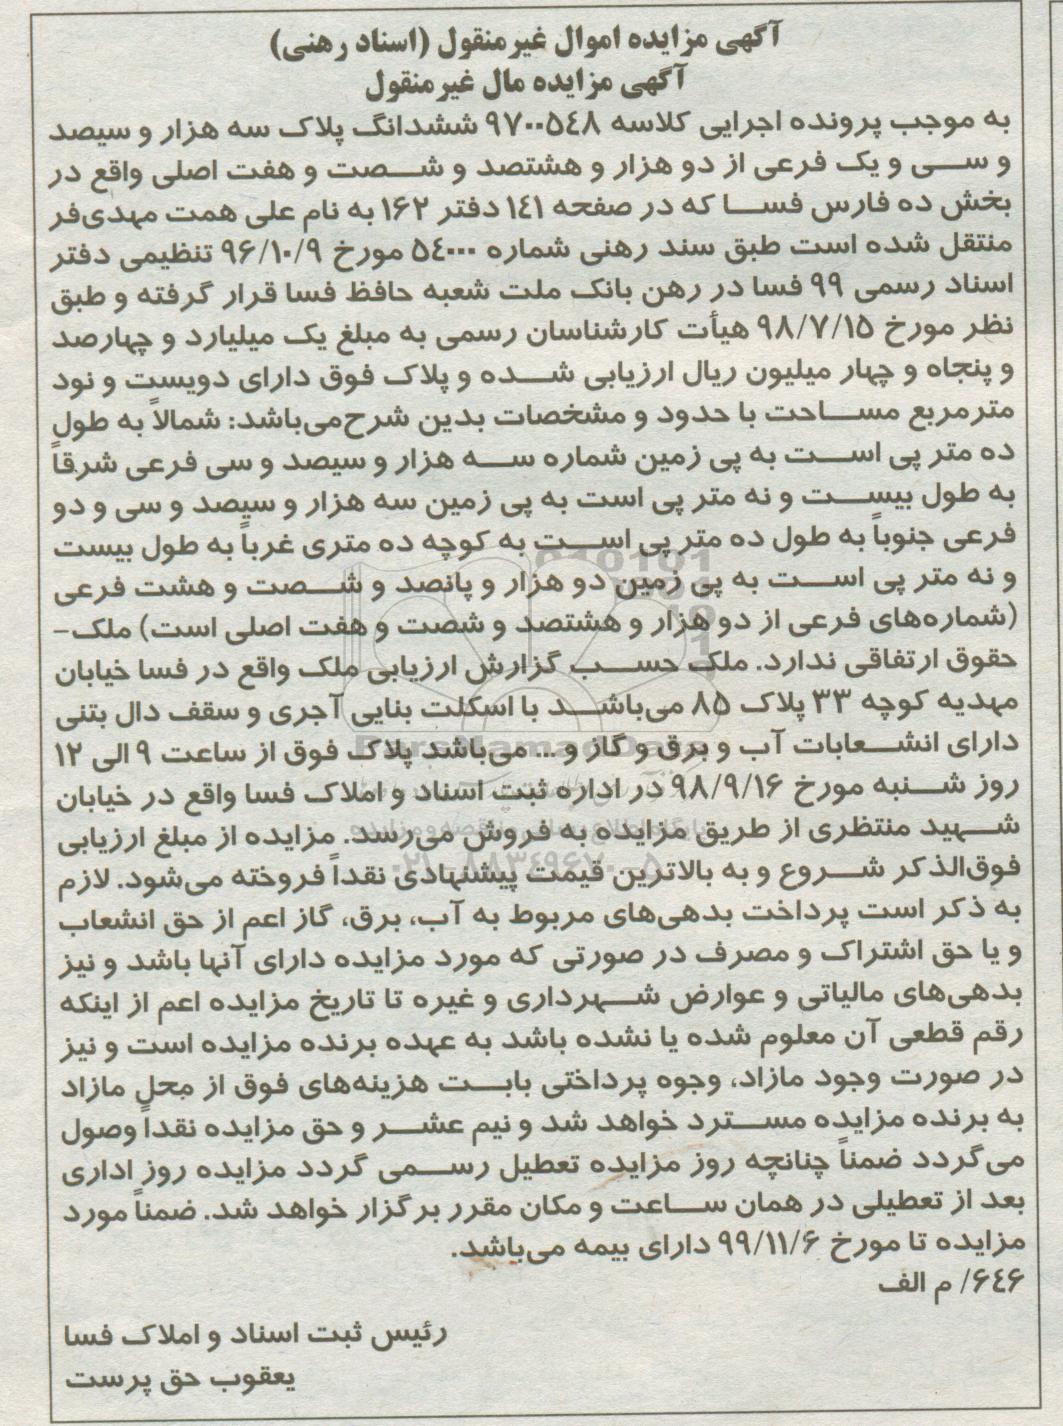 آگهی مزایده اموال غیرمنقول (اسناد رهنی)
آگهی مزایده مال غیرمنقول
به موجب پرونده اجرایی کلاسه ۹۷۰۰۵٤۸ ششدانگ پلاک سه هزار و سیصد
و سی و یک فرعی از دو هزار و هشتصد و شصت و هفت اصلی واقع در
بخش ده فارس فسا که در صفحه ۱٤۱ دفتر ۱۶۲ به نام علی همت مهدی‌فر
منتقل شده است طبق سند رهنی شماره ۵٤۰۰۰ مورخ ۹۶/۱۰/۹ تنظیمی دفتر
اسناد رسمی ۹۹ فسا در رهن بانک ملت شعبه حافظ فسا قرار گرفته و طبق
نظر مورخ ۹۸/۷/۱۵ هیأت کارشناسان رسمی به مبلغ یک میلیارد و چهارصد
و پنجاه و چهار میلیون ریال ارزیابی شده و پلاک فوق دارای دویست و نود
مترمربع مساحت با حدود و مشخصات بدین شرح‌می‌باشد: شمالاً به طول
ده متر پی است به پی زمین شماره سه هزار و سیصد و سی فرعی شرقاً
به طول بیست و نه متر پی است به پی زمین سه هزار و سیصد و سی و دو
فرعی جنوباً به طول ده متر پی است به کوچه ده متری غرباً به طول بیست
و نه متر پی است به پی زمین دو هزار و پانصد و شصت و هشت فرعی
(شماره‌های فرعی از دو هزار و هشتصد و شصت و هفت اصلی است) ملک-
حقوق ارتفاقی ندارد. ملک حسب گزارش ارزیابی ملک واقع در فسا خیابان
مهدیه کوچه ۳۳ پلاک ۸۵ می‌باشد با اسکلت بنایی آجری و سقف دال بتنی
دارای انشعابات آب و برق و گاز و ... می‌باشد پلاک فوق از ساعت ۹ الی ۱۲
روز شنبه مورخ ۹۸/۹/۱۶ در اداره ثبت اسناد و املاک فسا واقع در خیابان
شهید منتظری از طریق مزایده به فروش می‌رسد. مزایده از مبلغ ارزیابی
فوق‌الذکر شروع و به بالاترین قیمت پیشنهادی نقداً فروخته می‌شود. لازم
به ذکر است پرداخت بدهی‌های مربوط به آب، برق، گاز اعم از حق انشعاب
و یا حق اشتراک و مصرف در صورتی که مورد مزایده دارای آنها باشد و نیز
بدهی‌های مالیاتی و عوارض شهرداری و غیره تا تاریخ مزایده اعم از اینکه
رقم قطعی آن معلوم شده یا نشده باشد به عهده برنده مزایده است و نیز
در صورت وجود مازاد، وجوه پرداختی بابت هزینه‌های فوق از محل مازاد
به برنده مزایده مسترد خواهد شد و نیم عشر و حق مزایده نقداً وصول
می‌گردد ضمناً چنانچه روز مزایده تعطیل رسمی گردد مزایده روز اداری
بعد از تعطیلی در همان ساعت و مکان مقرر برگزار خواهد شد. ضمناً مورد
مزایده تا مورخ ۹۹/۱۱/۶ دارای بیمه می‌باشد.
۶٤۶/ م الف
رئیس ثبت اسناد و املاک فسا
یعقوب حق پرست